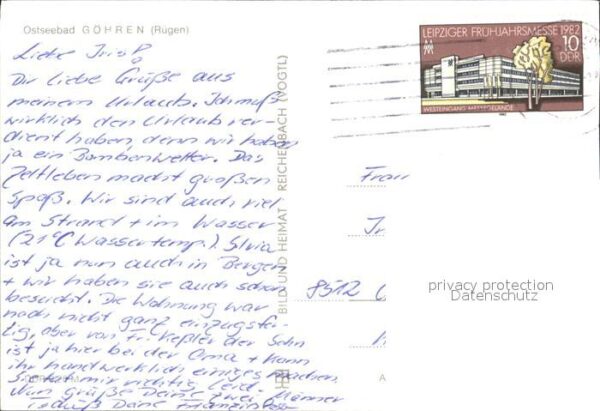 Ostseebad GÖHREN (Rügen)
Liebe Iris!
Dir liebe Grüße aus
meinem Urlaub. Ich muß
wirklich den Urlaub ver-
dient haben, denn wir haben
ja ein Bombenwetter. Das
Zeltleben macht großen
Spaß. Wir sind auch viel
am Strand + im Wasser
(21°C Wassertemp.). Silvia
ist ja nun auch in Bergen
+ wir haben sie auch schon
besucht. Die Wohnung war
noch nicht ganz einzugsfer-
tig, aber von Fr. Keßler der Sohn
ist ja hier bei der Oma + kann
ihr handwerklich einiges machen.
Sie tat mir richtig leid.
Nun grüße Deine zwei Männer
Deine
BILD UND HEIMAT · REICHENBACH (VOGTL)
LEIPZIGER FRÜHJAHRSMESSE 1982
10
DDR
WESTEINGANG MESSEGELÄNDE
1982
Frau
8512
A
privacy protection
Datenschutz